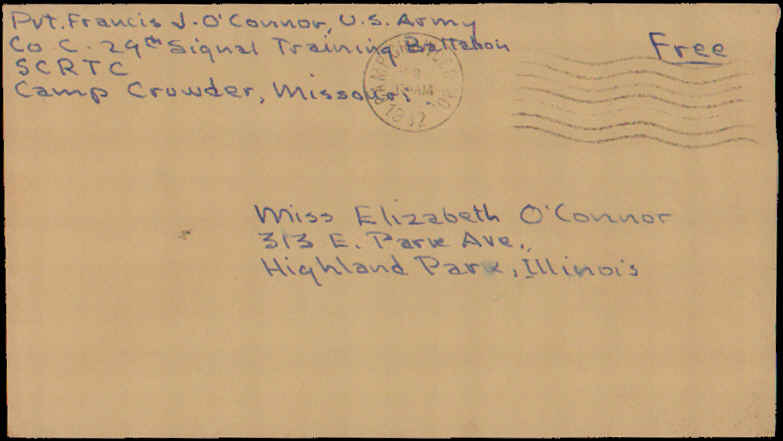 Pvt. Francis J. O'Connor, U.S. Army
Co C. 29th Signal Training Battalion
SCRTC
Camp Crowder, Missouri
Free
AM
1942
Miss Elizabeth O'Connor
313 E. Park Ave.,
Highland Park, Illinois